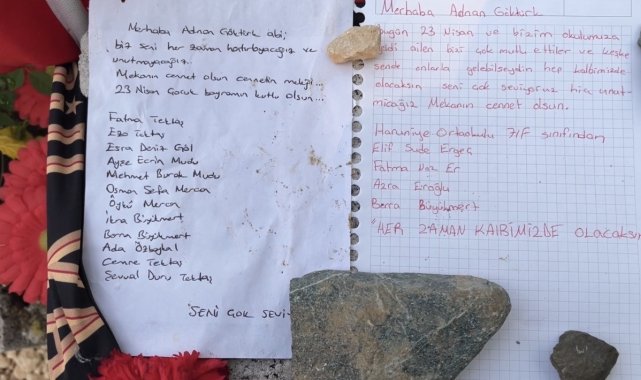 Merhaba Adnan Göktürk abi;
biz seni her zaman hatırlayacağız ve
unutmayacağız.
Mekanın cennet olsun cennetin meleği...
23 Nisan Çocuk bayramın kutlu olsun...
Fatma Tektaş
Ezo Tektaş
Esra Deniz Göl
Ayşe Ecrin Mudu
Mehmet Burak Mudu
Osman Sefa Mercan
Öykü Mercan
Büyükmert
Berra Büyükmert
Ada Özbaykal
Cemre Tektaş
Şevval Duru Tektaş
"SENİ ÇOK SEVİ
Merhaba Adnan Göktürk
bugün 23 Nisan ve bizim okulumuza
geldi ailen bizi çok mutlu ettiler ve keşke
sende onlarla gelebilseydin hep kalbimizde
olacaksın seni çok seviyoruz hiç unut-
mıcağız Mekanın cennet olsun.
Haruniye Ortaokulu 7/F sınıfından
Elif Sude Ergeç
Fatma Naz Er
Azra Eroğlu
Berra Büyükmert
"HER ZAMAN KALBİMİZDE OLACAKSIN